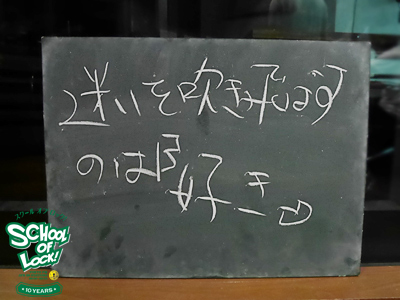 迷いを吹き飛ばす
のは『好き』
SCHOOL
OF
LOCK!
10 YEARS